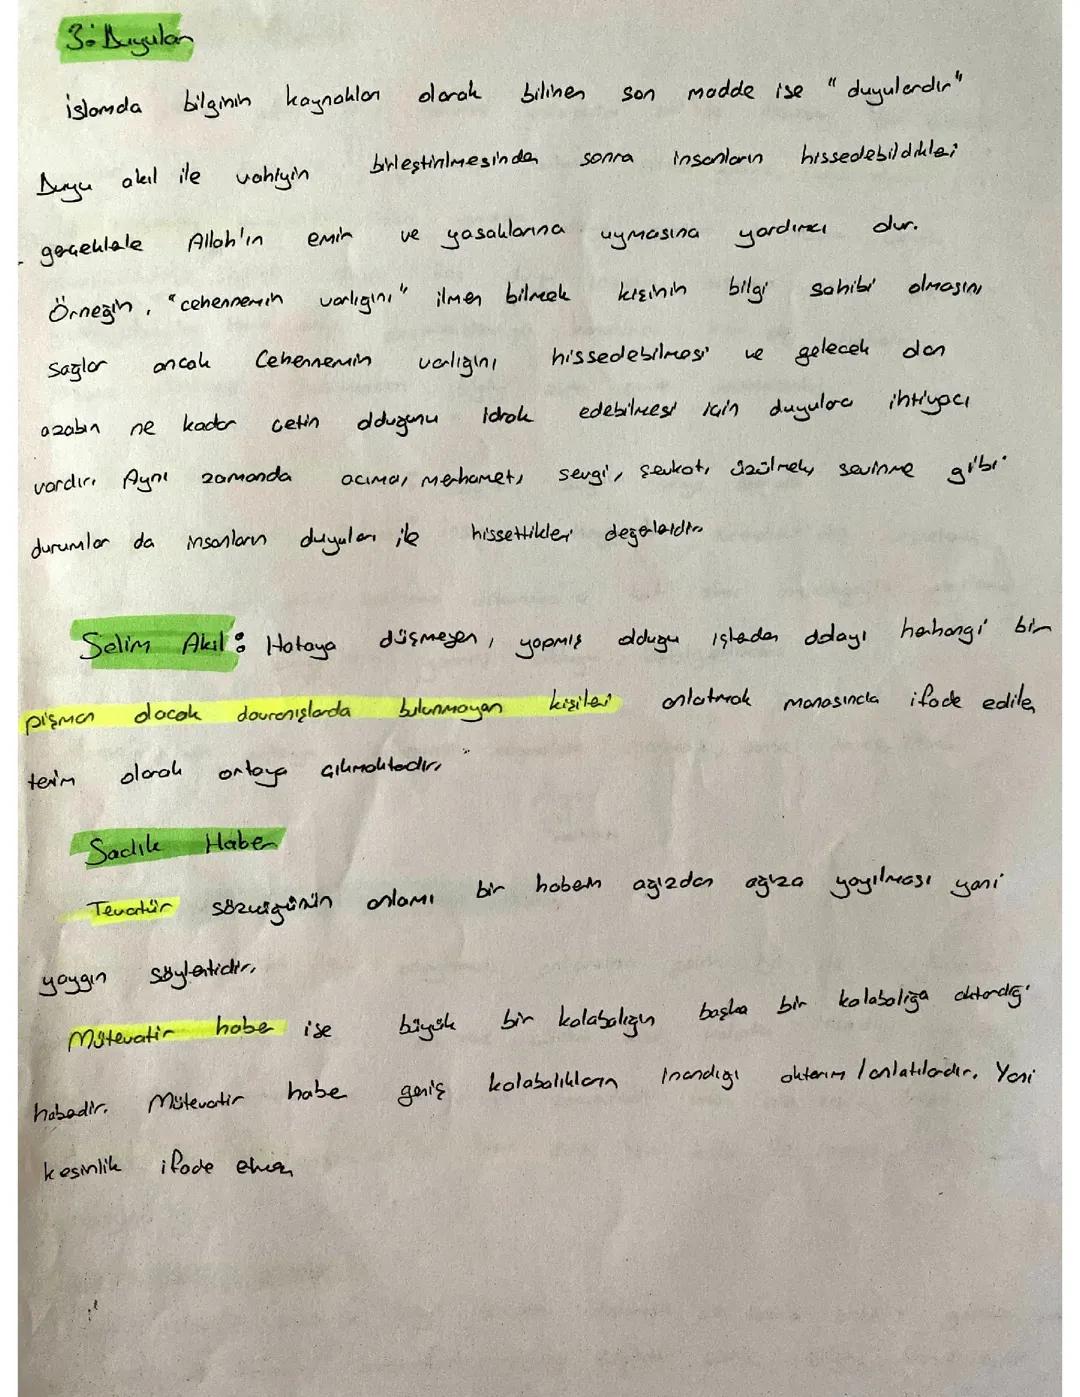 3: Duyuları
islamda bilginin kaynakları olarak bilinen son madde ise " duyulardır"
Duyu akıl ile vahiyin birleştirilmesinden sonra insanların hissedebildikleri
gerçeklerle Allah'ın emir ve yasaklarına uymasına yardımcı olur.
Örneğin, "cehennemin varlığını" ilmen bilmek kişinin bilgi sahibi olmasını
sağlar ancak Cehennemin varlığını hissedebilmesi ve gelecek olan
azabın ne kadar çetin olduğunu idrak edebilmesi için duyulara ihtiyacı
vardır. Aynı zamanda acıma, merhamet, sevgi, şevkat, üzülmek, sevinme gibi
durumlar da insanların duyuları ile hissettikleri değerlerdir.
Selim Akıl: Hataya düşmeyen, yapmış olduğu işlerden dolayı herhangi bir
pişman olacak davranışlarda bulunmayan kişileri anlatmak manasında ifade edilen
terim olarak ortaya çıkmaktadır.
Sadık Haber
Tevatür sözcüğünün anlamı bir haberin ağızdan ağıza yayılması yani
yaygın söylentidir.
Mütevatir haber ise büyük bir kalabalığın başka bir kalabalığa aktardığı
haberdir. Mütevatir haber geniş kalabalıkların inandığı aktarım / anlatılardır. Yani
kesinlik ifade eder